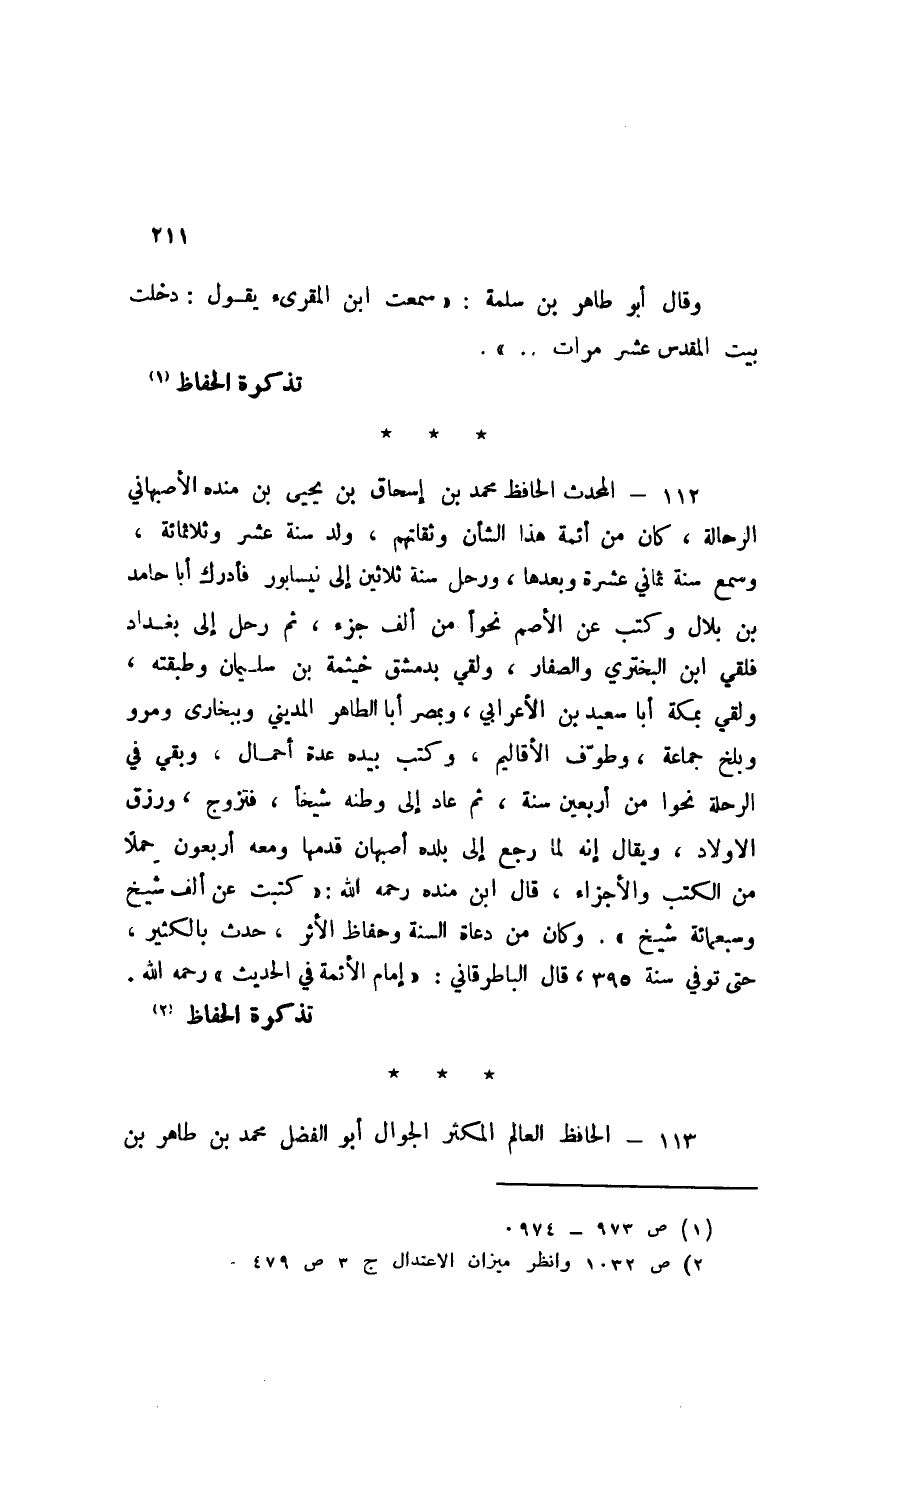 ٢١١
وقال أبو طاهر بن سلمة : « سمعت ابن المقرىء يقـول : دخلت
بيت المقدس عشر مرات .. » .
تذكرة الحفاظ (١)
★ ★ ★
١١٢ – المحدث الحافظ محمد بن إسحاق بن يحيى بن منده الأصبهاني
الرحالة ، كان من أئمة هذا الشأن وثقاتهم ، ولد سنة عشر وثلاثمائة ،
وسمع سنة ثماني عشرة وبعدها ، ورحل سنة ثلاثين إلى نيسابور فأدرك أبا حامد
بن بلال وكتب عن الأصم نحواً من ألف جزء ، ثم رحل إلى بغـداد
فلقي ابن البختري والصفار ، ولقي بدمشق خيثمة بن سلـيمان وطبقته ،
ولقي بمكة أبا سعيد بن الأعرابي ، وبمصر أبا الطاهر المديني وببخارى ومرو
وبلخ جماعة ، وطوّف الأقاليم ، وكتب بيده عدة أحمـال ، وبقي في
الرحلة نحوا من أربعين سنة ، ثم عاد إلى وطنه شيخاً ، فتزوج ، ورزق
الاولاد ، ويقال إنه لما رجع إلى بلده أصبهان قدمها ومعه أربعون حِملًا
من الكتب والأجزاء ، قال ابن منده رحمه الله : « كتبت عن ألف شيخ
وسبعمائة شيخ » . وكان من دعاة السنة وحفاظ الأثر ، حدث بالكثير ،
حتى توفي سنة ٣٩٥ ، قال الباطرقاني : « إمام الأئمة في الحديث » رحمه الله .
تذكرة الحفاظ (٢)
★ ★ ★
١١٣ – الحافظ العالم المكثر الجوال أبو الفضل محمد بن طاهر بن
(١) ص ٩٧٣ – ٩٧٤ .
٢) ص ١٠٣٢ وانظر ميزان الاعتدال ج ٣ ص ٤٧٩ .